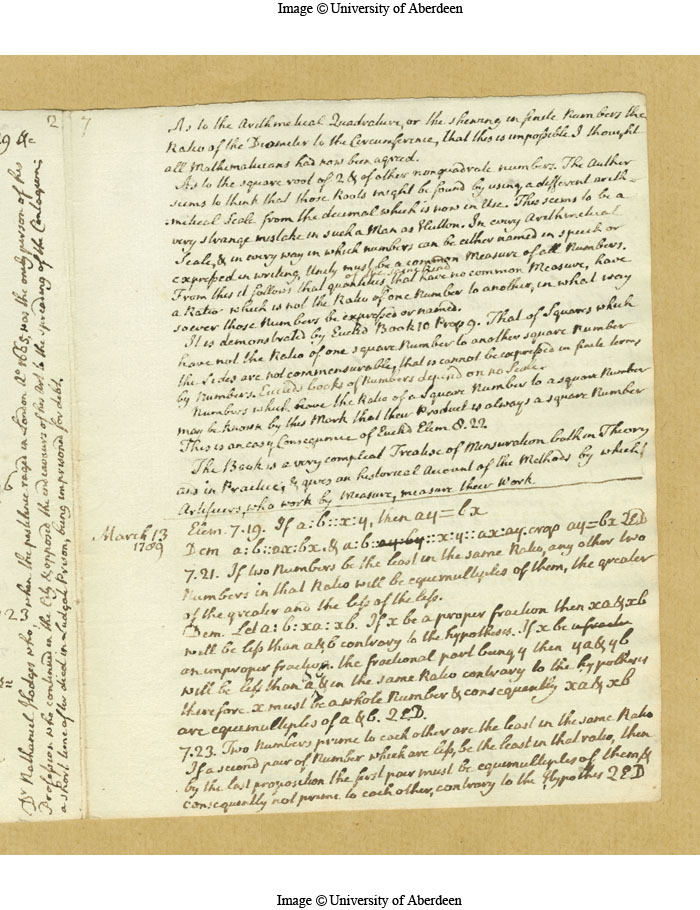 Image © University of Aberdeen
2
7
9 &c
As to the Arithmetical Quadrature, or the shewing in finite Numbers the
Ratio of the Diameter to the Circumference, that this is impossible I thought
all Mathematicians had now been agreed.
As to the square root of 2 & of other nonquadrate numbers. The Author
seems to think that those Roots might be found by using a different arith-
-metical Scale from the decimal which is now in Use. This seems to be a
very strange mistake in such a Man as Hutton. In every Arithmetical
Scale, & in every way in which numbers can be either named in speech or
expressed in writing, Unity must be a common Measure of all Numbers.
of the same kind
From this it follows that quantities that have no common Measure, have
a Ratio which is not the Ratio of one Number to another, in what way
soever those Numbers be expressed or named.
It is demonstrated by Euclid Book 10 Prop 9. That of Squares which
have not the Ratio of one square Number to another square Number
the Sides are not commensurable, that is cannot be expressed in finite terms
by Numbers. Euclids books of Numbers depend on no Scale.
Numbers which have the Ratio of a Square Number to a square Number
may be known by this Mark that their Product is always a square Number
This is an easy Consequence of Euclid Elem 8.22.
The Book is a very compleat Treatise of Mensuration both in Theory
and in Practice; & gives an historical Account of the Methods by which
Artificers, who work by Measure, measure their Work
March 13
1789
Elem. 7.19. If a:b::x:y, then ay = bx
Dem a:b::ax:bx, & a:b::x:y::ax:ay. ergo ay=bx QED
7.21. If two Numbers be the least in the same Ratio, any other two
Numbers in that Ratio will be equemultiples of them, the greater
of the greater and the less of the less.
Dem. Let a:b::xa:xb. If x be a proper fraction then xa & xb
will be less than a & b contrary to the hypothesis. If x be
an improper fraction. the fractional part being y then ya & yb
will be less than a & b in the same Ratio contrary to the hypothesis
therefore x must be a whole Number & consequently xa & xb
are equemultiples of a & b. QED.
7.23. Two Numbers prime to each other are the least in the same Ratio
If a second pair of Number which are less, be the least in that ratio, then
by the last proposition the first pair must be equemultiples of them &
consequently not prime to each other, contrary to the Hypothes QED
Dr Nathaniel Hodges who, when the pestilence raged in London Ao 1665, was the only person of his
Profession who continued in the City & oppos'd the endeavours of his art to the spreading of the Contagion;
a short time after died in Ludgate Prison, being imprisoned for debt.
2
Image © University of Aberdeen